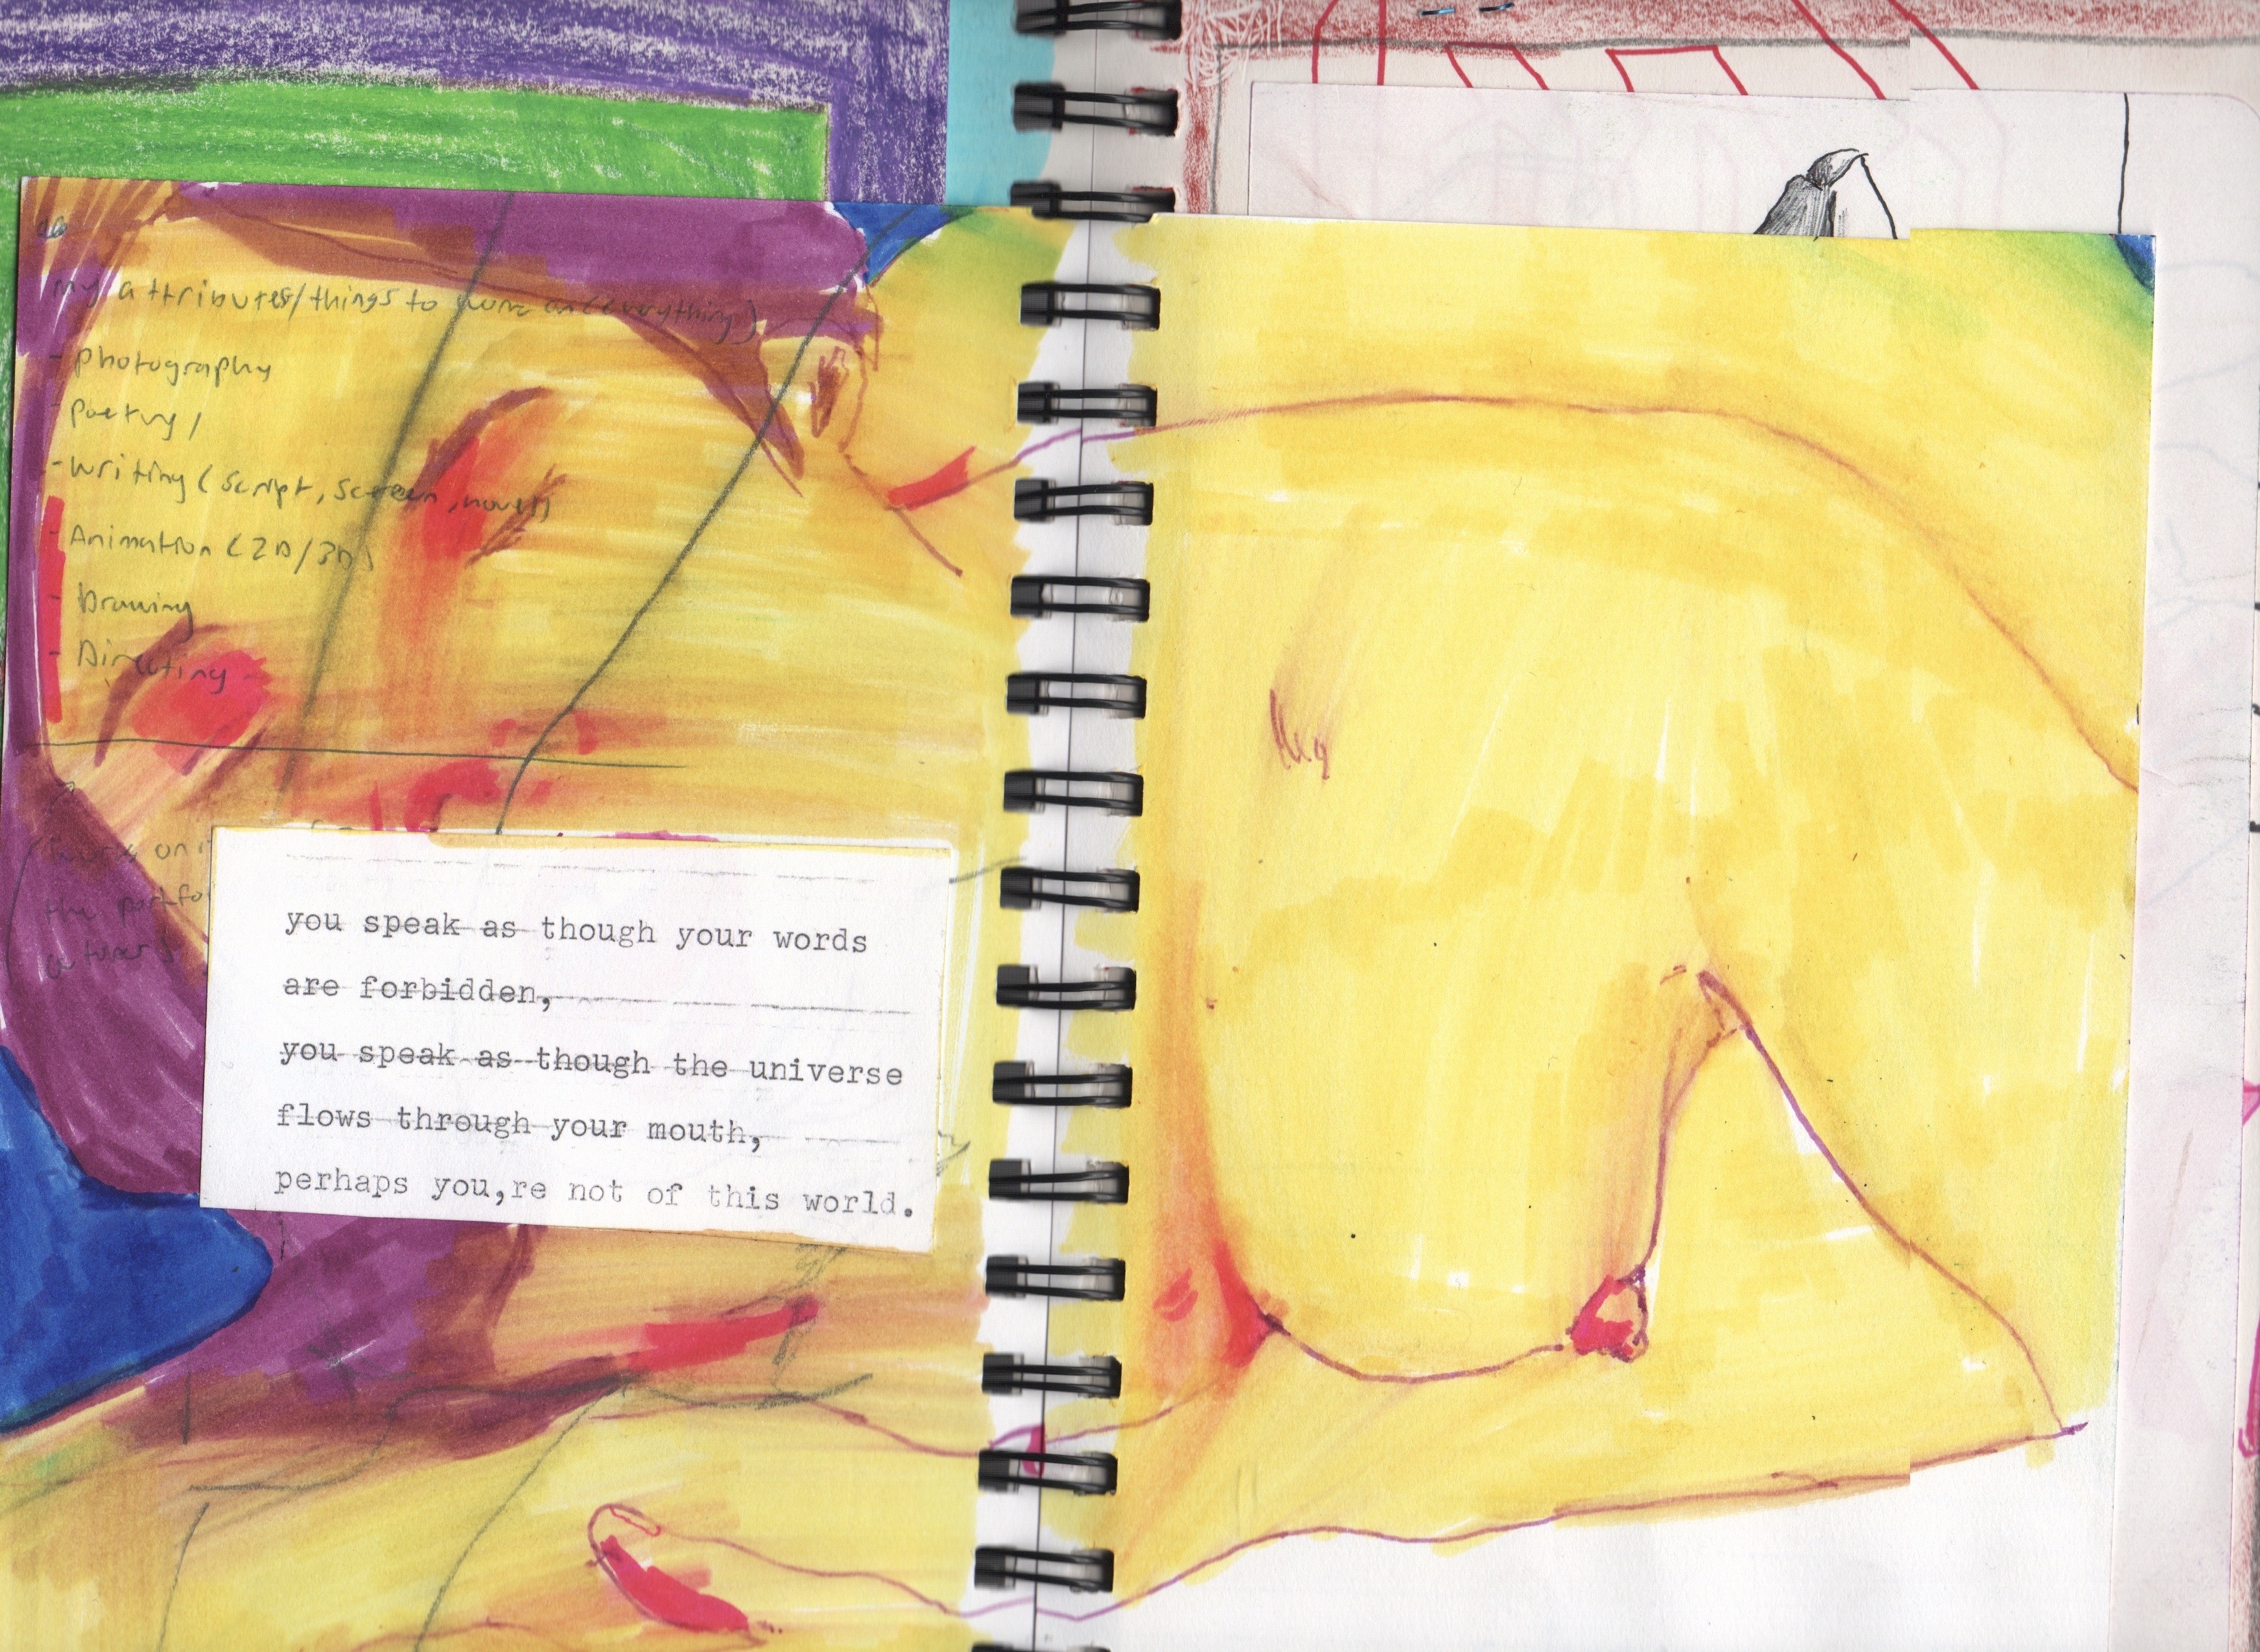 my attributes/things to work on (everything)
- photography
- Poetry/
- Writing (script, screen, novel)
- Animation (2D/3D)
- Drawing
- Directing
work on
the portfo
you speak as though your words
are forbidden,
you speak as though the universe
flows through your mouth,
perhaps you,re not of this world.